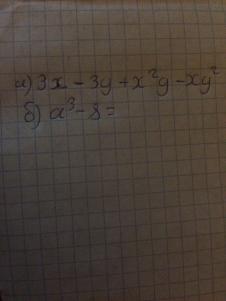 а) 3x - 3y + x²y - xy²
б) a³ - 8 =